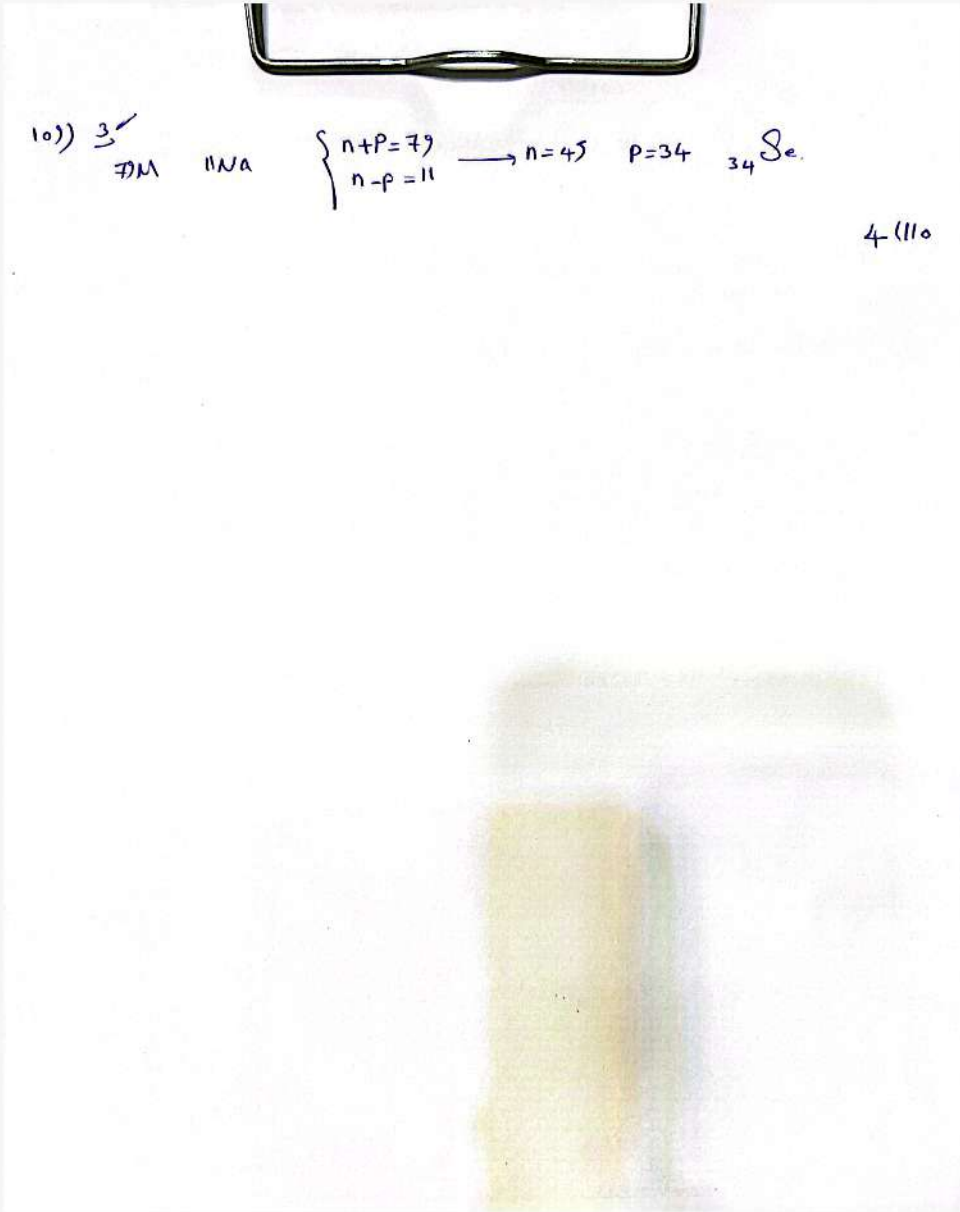 109) 3✓
79M 11Na { n+p=79 n-p=11 → n=45 p=34 34Se.
4 (110